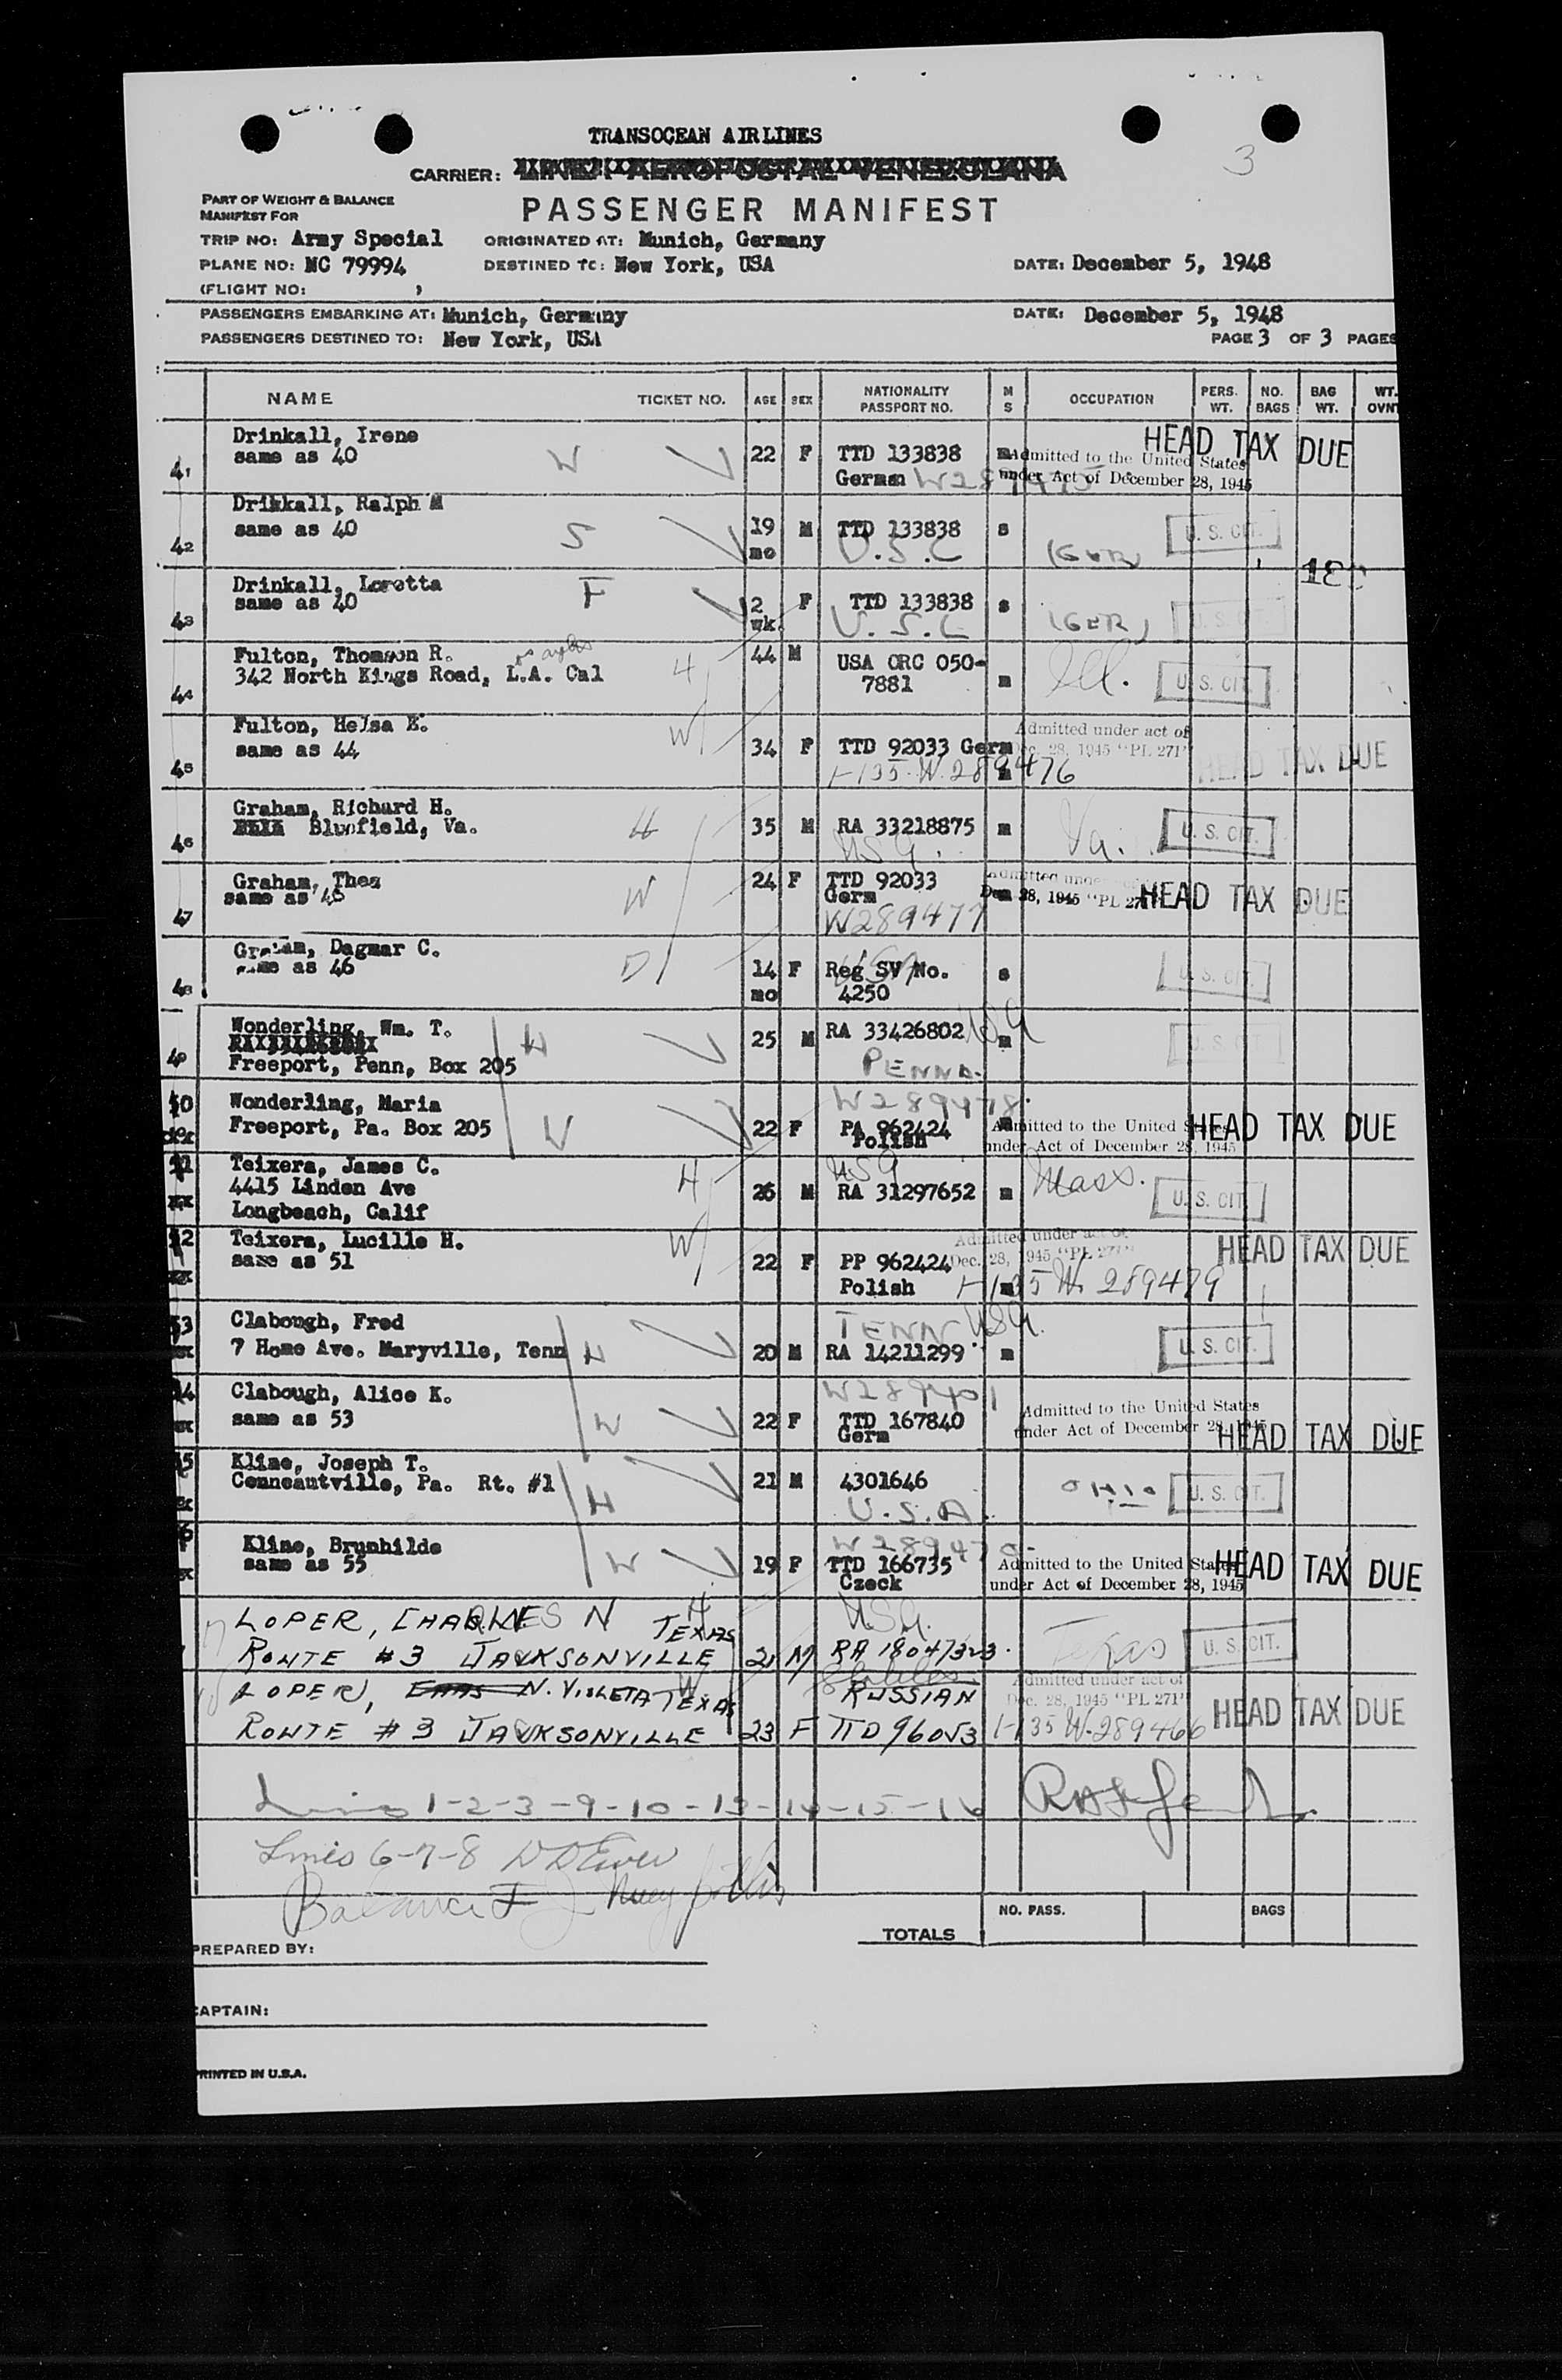 3
TRANSOCEAN AIRLINES
CARRIER: LINEA AEROPOSTAL VENEZOLANA
PART OF WEIGHT & BALANCE
MANIFEST FOR
PASSENGER MANIFEST
TRIP NO: Army Special ORIGINATED AT: Munich, Germany
PLANE NO: NC 79994 DESTINED TO: New York, USA DATE: December 5, 1948
(FLIGHT NO: )
PASSENGERS EMBARKING AT: Munich, Germany DATE: December 5, 1948
PASSENGERS DESTINED TO: New York, USA PAGE 3 OF 3 PAGES
NAME TICKET NO. AGE SEX NATIONALITY PASSPORT NO. M S OCCUPATION PERS. WT. NO. BAGS BAG WT. WT. OVNT
Drinkall, Irene HEAD TAX DUE
41 same as 40 W 22 F TTD 133838 m Admitted to the United States
German under Act of December 28, 1945
Drikkall, Ralph M
42 same as 40 S 19 mo M TTD 133838 s U. S. CIT.
U.S.C (GER)
Drinkall, Loretta
43 same as 40 F 2 wk. F TTD 133838 s U. S. CIT.
U.S.C (GER)
Fulton, Thomson R. 44 M USA ORC 050-
44 342 North Kings Road, L.A. Cal H 7881 m U. S. CIT.
Fulton, Helsa E. W Admitted under act of
45 same as 44 34 F TTD 92033 Germ Dec. 28, 1945 "PL 271" HEAD TAX DUE
1-135 W. 289476 m
Graham, Richard H.
46 Bluefield, Va. H 35 M RA 33218875 m Va. U. S. CIT.
USA.
Graham, Thea 24 F TTD 92033 Admitted under
47 same as 46 W Germ Dec. 28, 1945 "PL 271" HEAD TAX DUE
W289477
Graham, Dagmar C.
48 same as 46 D 14 mo F Reg SV No. s U. S. CIT.
USA 4250
Wonderling, Wm. T. 25 M RA 33426802 USA m U. S. CIT.
49 Freeport, Penn, Box 205 H PENNA.
50 Wonderling, Maria W289478
Freeport, Pa. Box 205 W 22 F PA 962424 m Admitted to the United States HEAD TAX DUE
Polish under Act of December 28, 1945
51 Teixera, James C. H USA Mass.
4415 Linden Ave 26 M RA 31297652 m U. S. CIT.
Longbeach, Calif
52 Teixera, Lucille H. W Admitted under act of HEAD TAX DUE
same as 51 22 F PP 962424 Dec. 28, 1945 "PL 271"
Polish 1-135 W. 289479
53 Clabough, Fred TENN USA.
7 Home Ave. Maryville, Tenn H 20 M RA 14211299 m U. S. CIT.
54 Clabough, Alice K. Admitted to the United States
same as 53 W 22 F TTD 167840 under Act of December 28, 1945 HEAD TAX DUE
Germ
55 Kline, Joseph T.
Conneautville, Pa. Rt. #1 H 21 M 4301646 OHIO U. S. CIT.
U.S.A.
56 Kline, Brunhilde
same as 55 W 19 F TTD 166735 Admitted to the United States HEAD TAX DUE
Czeck under Act of December 28, 1945
LOPER, CHARLES N H TEXAS USA. Texas U. S. CIT.
ROUTE #3 JACKSONVILLE 21 M RA 18047323
LOPER, N. VIOLETA W TEXAS RUSSIAN Admitted under act of
Dec. 28, 1945 "PL 271" HEAD TAX DUE
ROUTE #3 JACKSONVILLE 23 F TTD 96053 1-135 W. 289466
Lines 1-2-3-9-10-13-14-15-16
Lines 6-7-8
Balance
TOTALS NO. PASS. BAGS
PREPARED BY:
CAPTAIN:
PRINTED IN U.S.A.